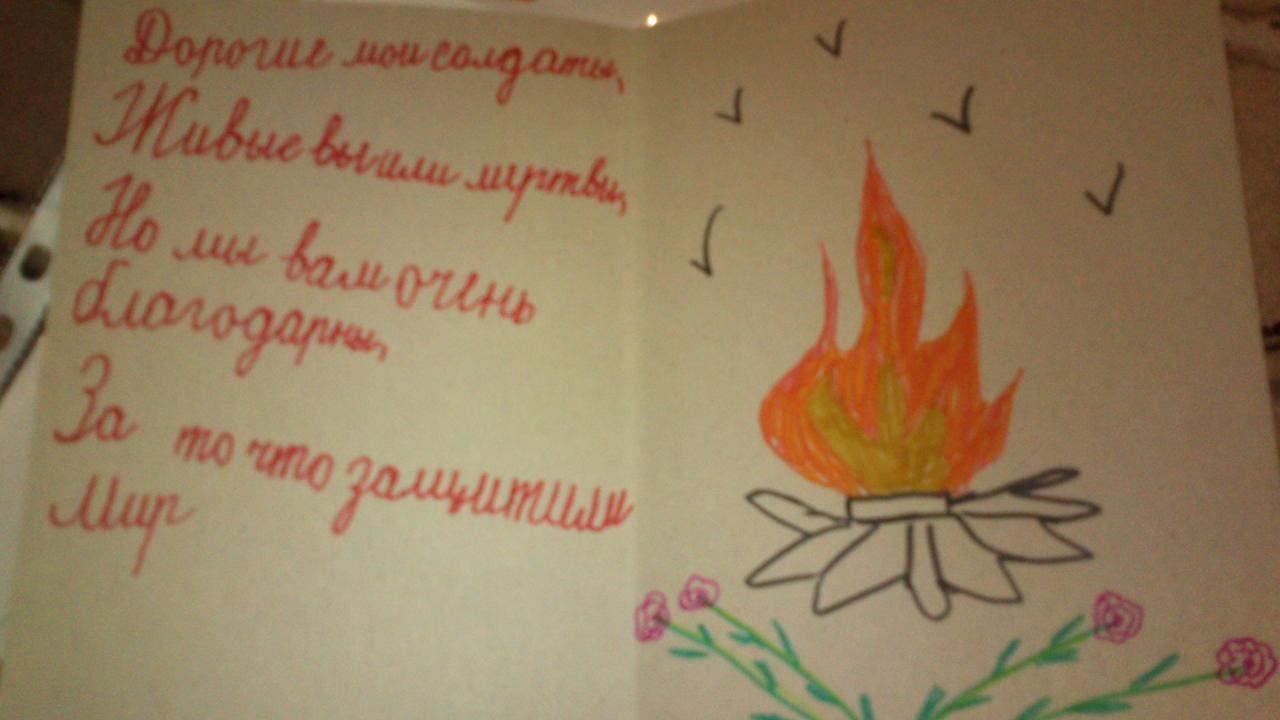 Дорогие мои солдаты,
Живые вы или мертвы,
Но мы вам очень
благодарны,
За то что защитили
Мир